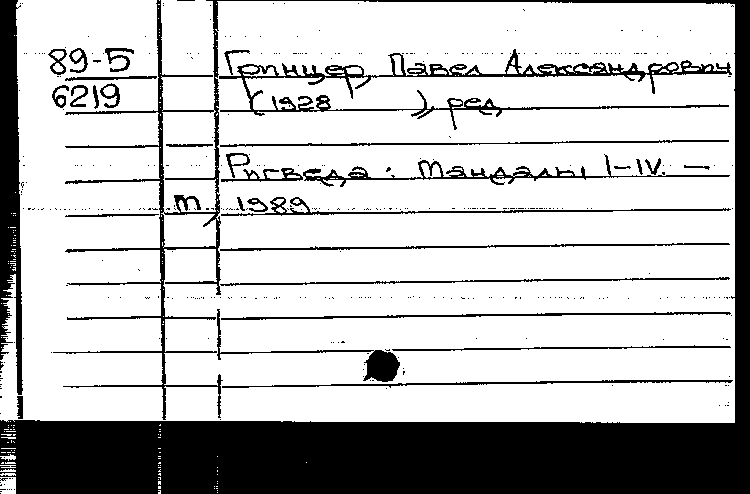 89-5 Гринцер, Павел Александрович
6219 (1928 ), ред.
Ригведа: Мандалы I-IV. —
m, 1989